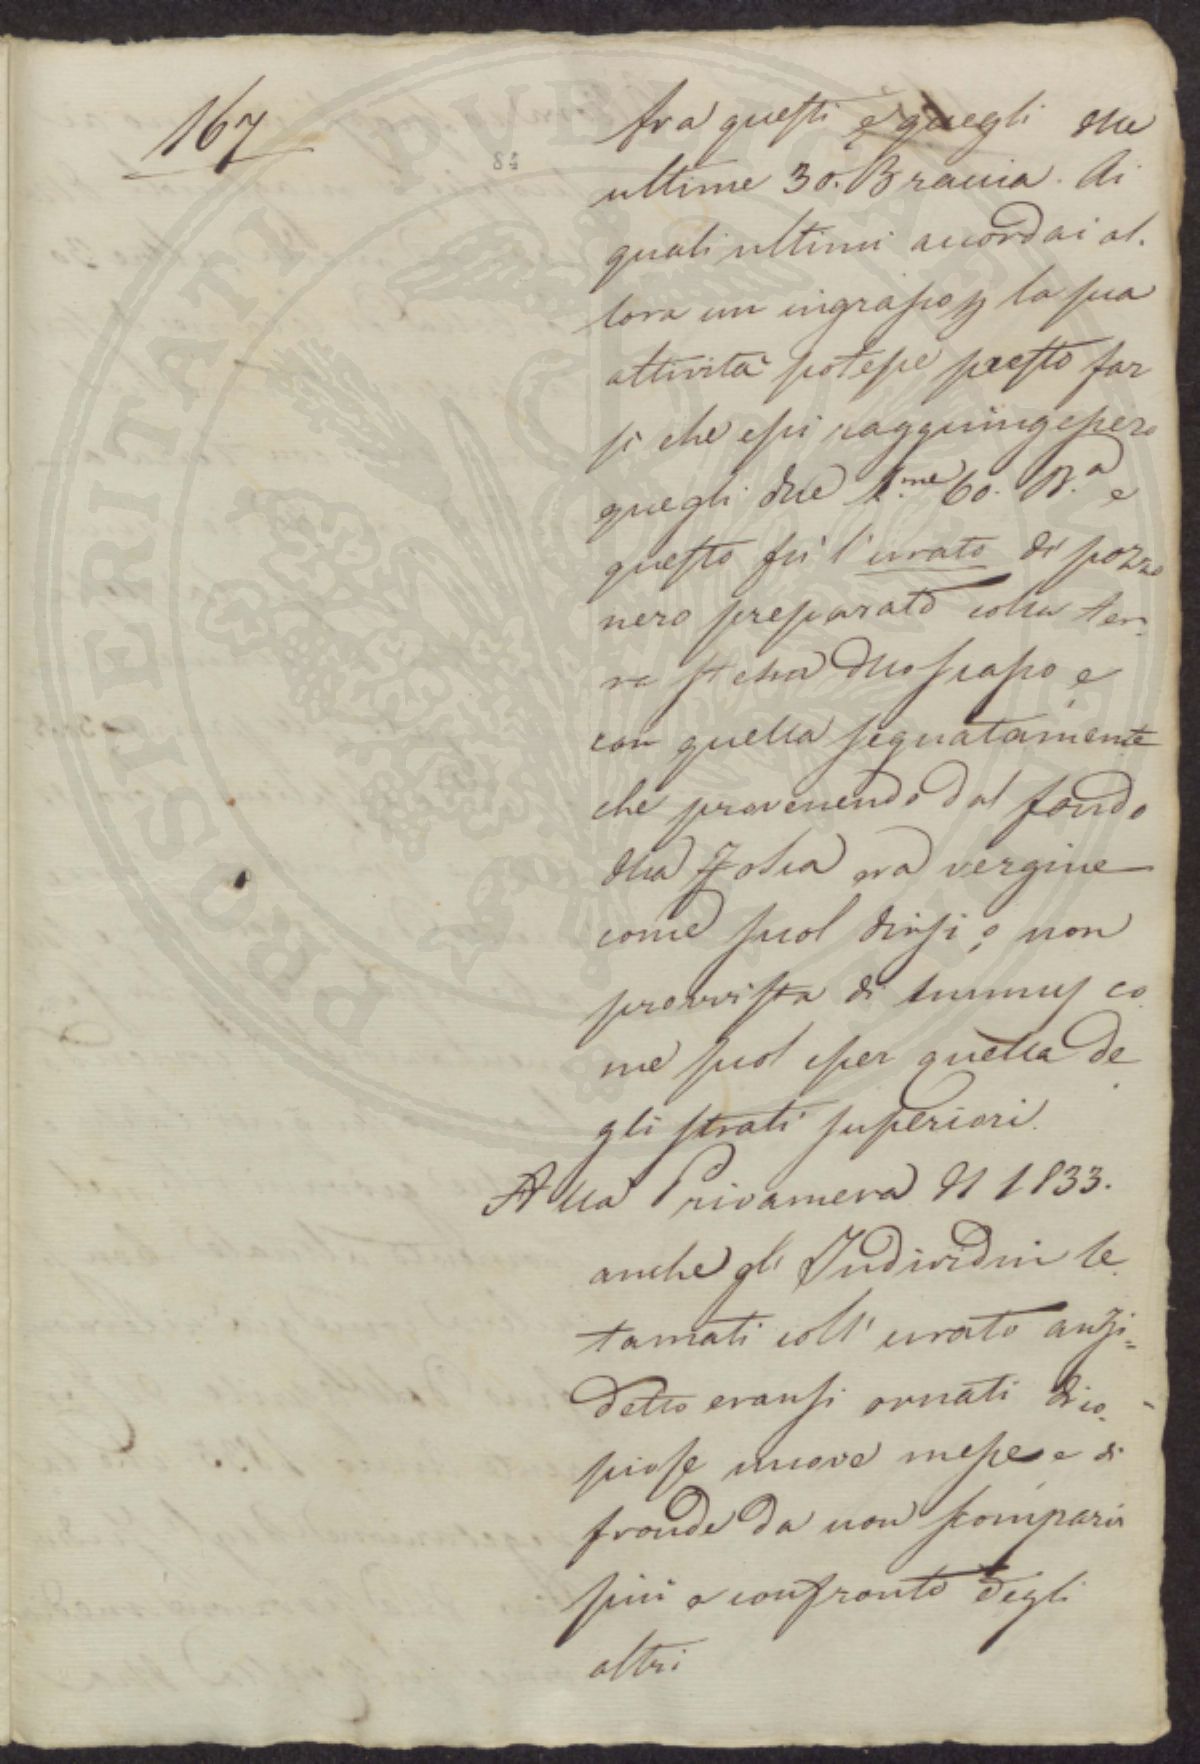 167
84
fra questi e quegli due
ultime 30. Braccia. Ai
quali ultimi accordai al.
lora un ingrasso p la sua
attività potesse presto far
sì che essi raggiungessero
quegli due 1.me 60. B.a e
questo fu l'urato di pozzo
nero preparato colla ter
ra stessa dello scasso e
con quella segnatamente
che provenendo dal fondo
della Fossa era vergine
come suol dirsi, o non
provvista di humus co
me suol esser quella de
gli strati superiori.
Alla Primavera del 1833.
anche gli Individui le
tamati coll'urato anzi=
detto eransi ornati di co
piose nuove messe e di
fronde da non scomparir
più a confronto degli
altri
PROSPERITATI PUBLICAE